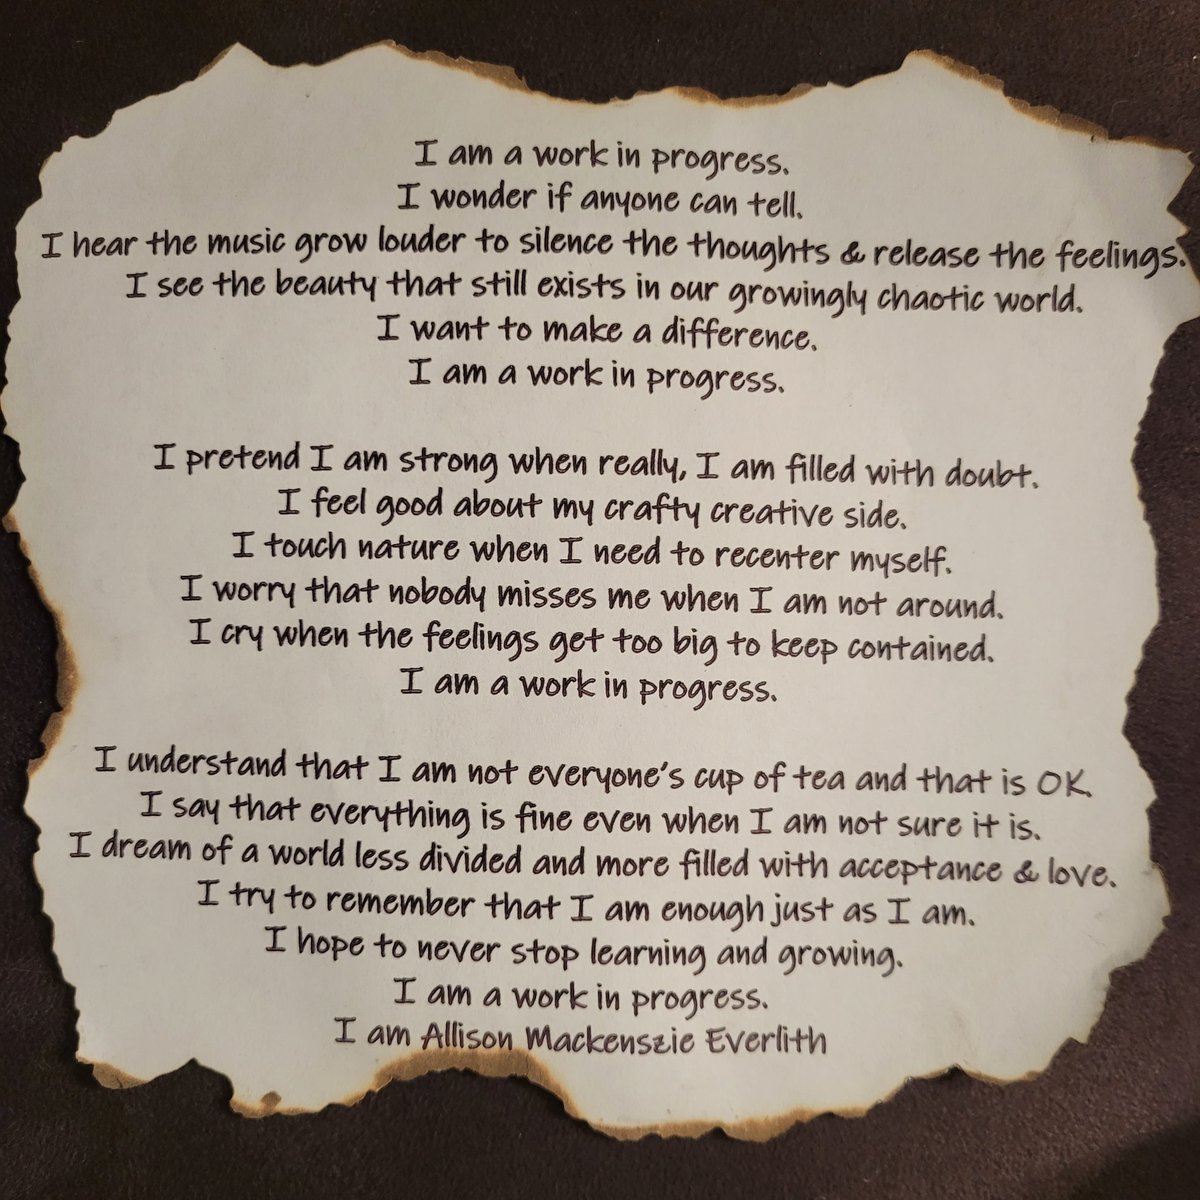 I am a work in progress.
I wonder if anyone can tell.
I hear the music grow louder to silence the thoughts & release the feelings.
I see the beauty that still exists in our growingly chaotic world.
I want to make a difference.
I am a work in progress.
I pretend I am strong when really, I am filled with doubt.
I feel good about my crafty creative side.
I touch nature when I need to recenter myself.
I worry that nobody misses me when I am not around.
I cry when the feelings get too big to keep contained.
I am a work in progress.
I understand that I am not everyone's cup of tea and that is OK.
I say that everything is fine even when I am not sure it is.
I dream of a world less divided and more filled with acceptance & love.
I try to remember that I am enough just as I am.
I hope to never stop learning and growing.
I am a work in progress.
I am Allison Mackenszie Everlith